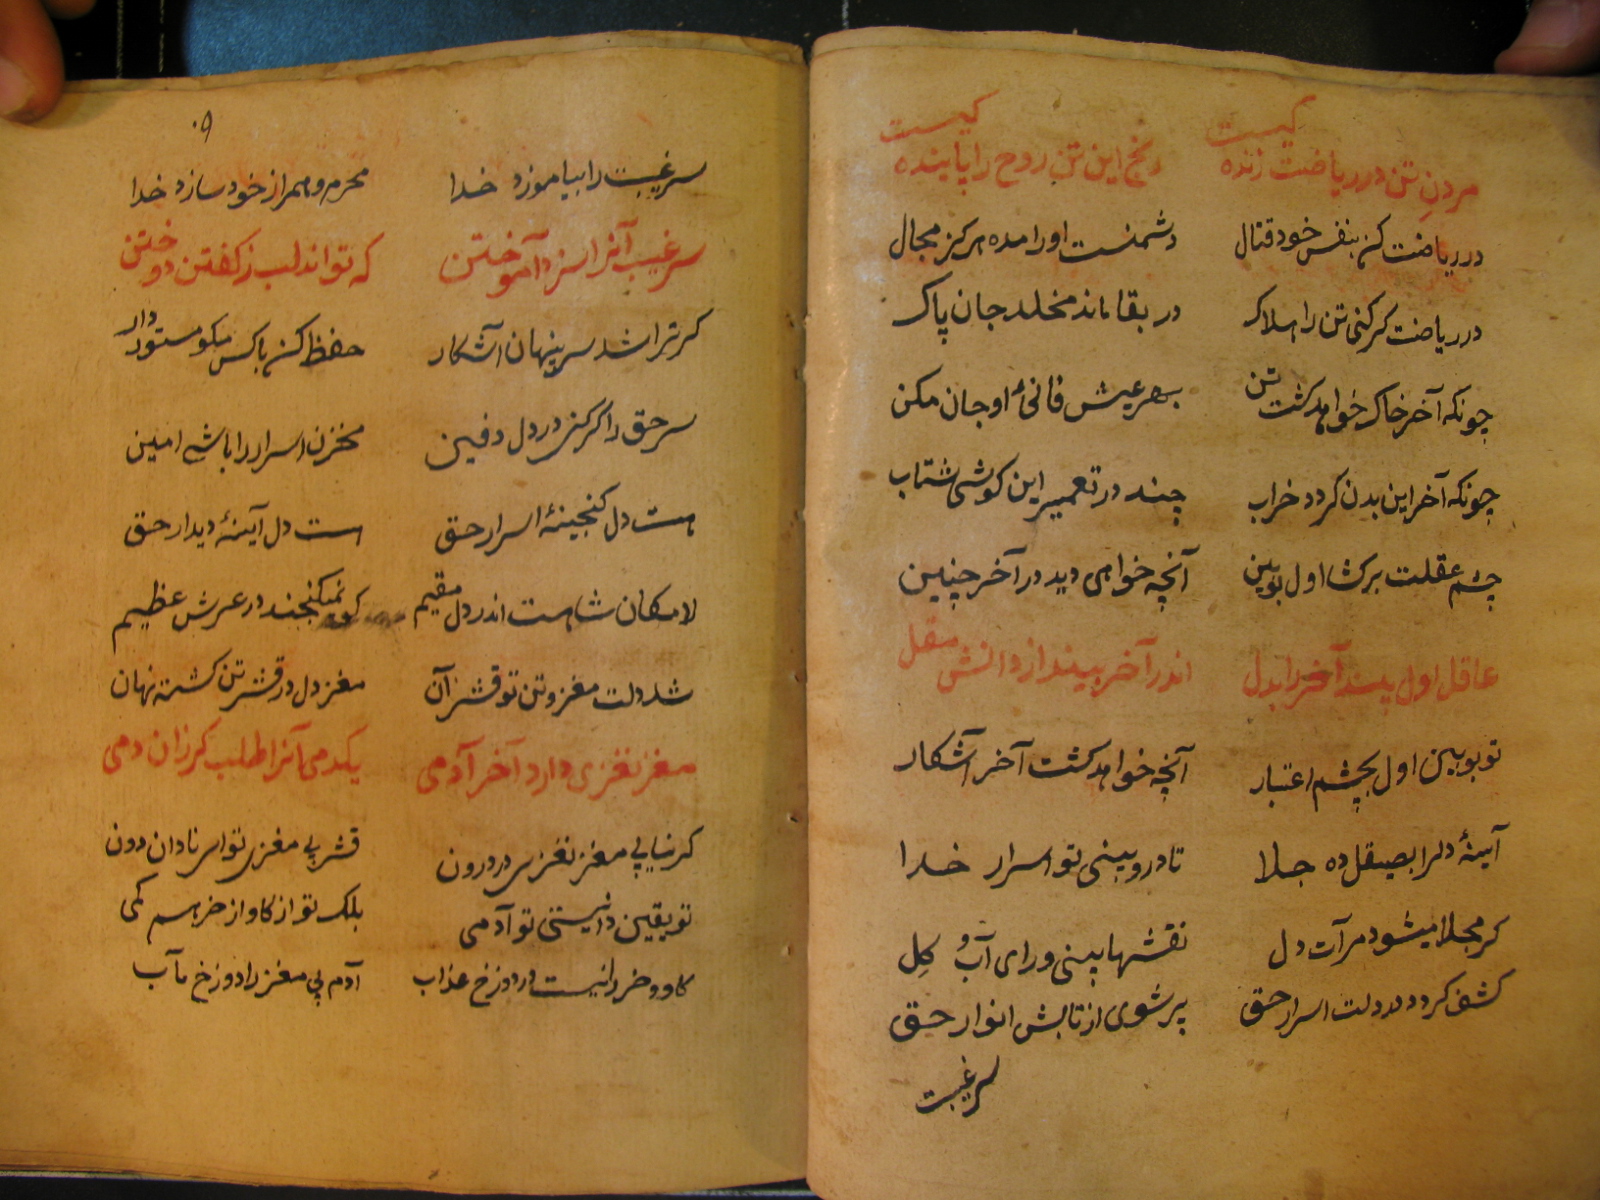 مردن تن در ریاضت زندگیست رنج این تن روح را پایندگیست
در ریاضت کن بنفس خود قتال دشمنست او را مده هرکز مجال
در ریاضت کر کنی تن را هلاک در بقا ماند مخلد جان پاک
چونکه آخر خاک خواهد کشت تن بهر عیش فانیٔ او جان مکن
چونکه آخر این بدن کردد خراب چند در تعمیر این کوشی شتاب
چشم عقلت برکشا اول ببین آنچه خواهی دید در آخر چنین
عاقل اول بیند آخر را بدل اندر آخر بیند از دانش مقل
تو ببین اول بچشم اعتبار آنچه خواهد کشت آخر آشکار
آینهٔ دلرا بصیقل ده جلا تا درو بینی تو اسرار خدا
کر مجلا میشود مرآت دل نقشها بینی ورای آب و کل
کشف کردد در دلت اسرار حق پر شوی از تابش انوار حق
سر غیبت
۰۹
سر غیبت را بیاموزد خدا محرم و همراز خود سازد خدا
سر غیب آنرا سزد آموختن که تواند لب ز کفتن دوختن
کر ترا شد سر پنهان آشکار حفظ کن با کس مکو مستور دار
سر حق را کر کنی در دل دفین مخزن اسرار را باشی امین
هست دل کنجینهٔ اسرار حق هست دل آینهٔ دیدار حق
لامکان شاهست اندر دل مقیم کو نمیکنجند در عرش عظیم
شد دلت مغز و تن تو قشر آن مغز دل در قشر تن کشته نهان
مغز نغزی دارد آخر آدمی یکدمی آنرا طلب کر زان دمی
کر نیابی مغز نغزی در درون قشر بی مغزی تو اس نادان دون
تو یقین دانیستی تو آدمی بلک تو از کاو از خر هم کمی
کاو و خر را نیست در دوزخ عذاب آدم بی مغز را دوزخ مآب